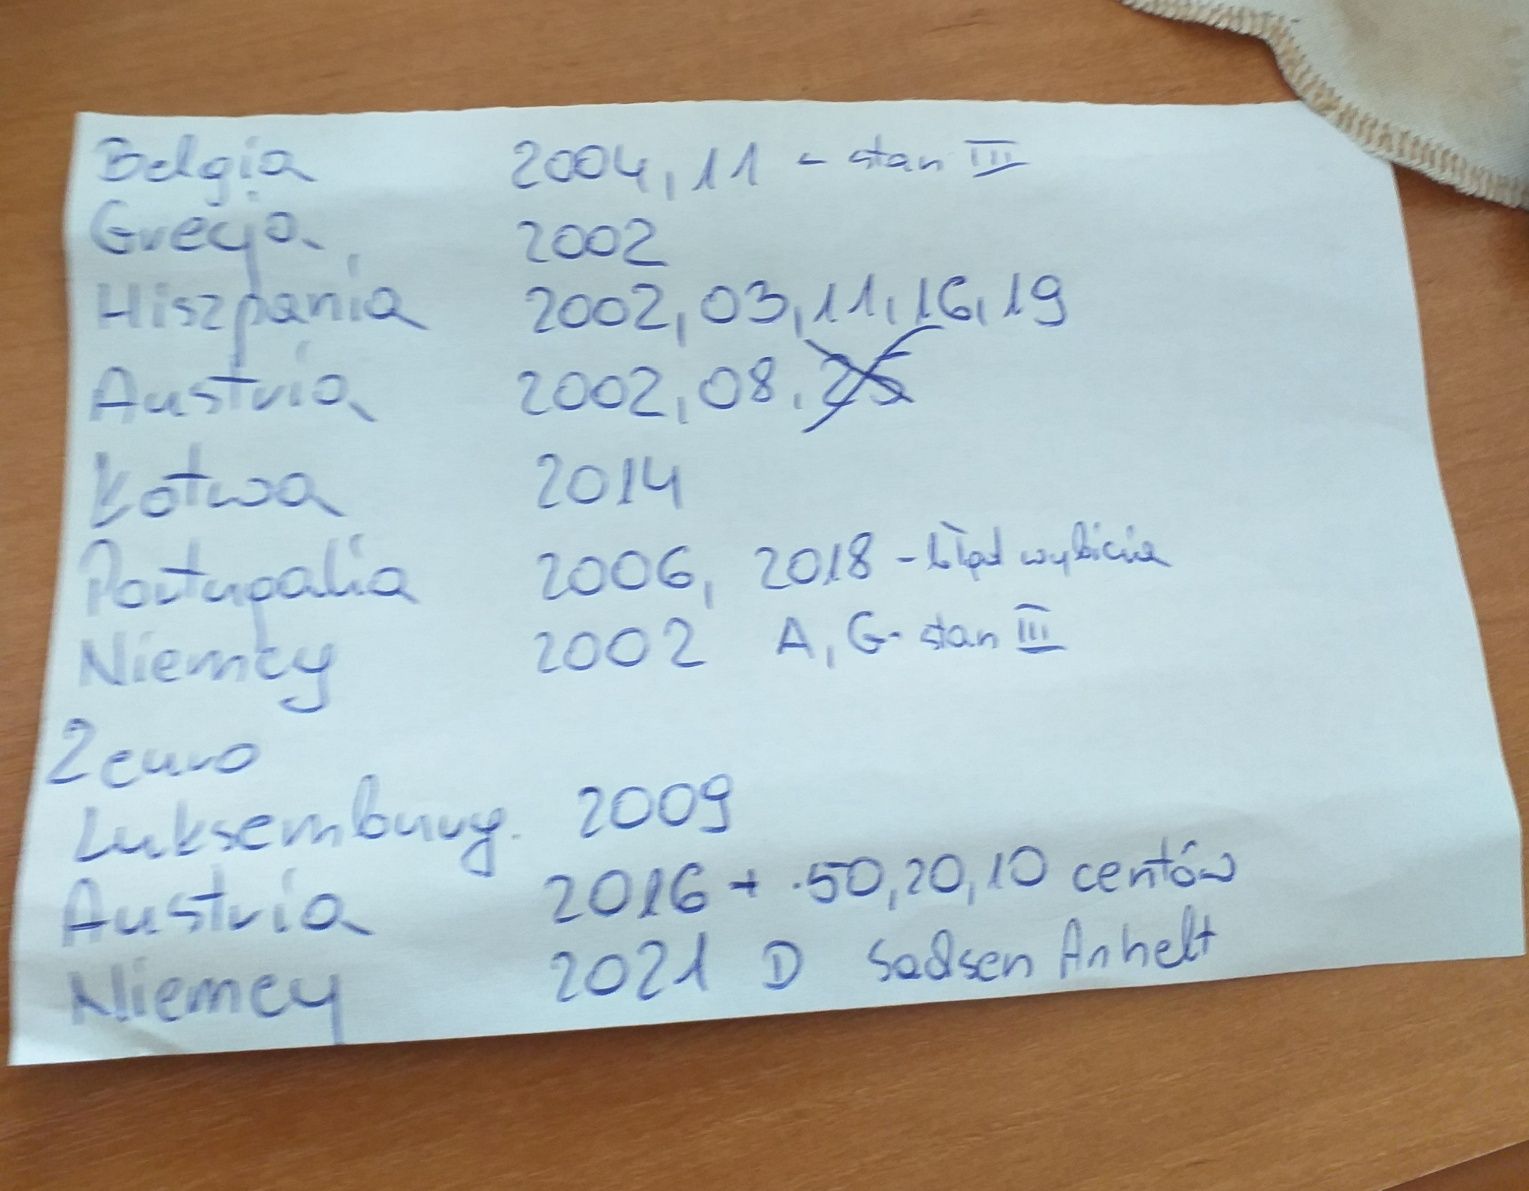 Belgia 2004, 11 - stan III
Grecja 2002
Hiszpania 2002, 03, 11, 16, 19
Austria 2002, 08, 25
Łotwa 2014
Portugalia 2006, 2018 - błąd wybicia
Niemcy 2002 A, G - stan III
2 euro
Luksemburg. 2009
Austria 2016 + 50, 20, 10 centów
Niemcy 2021 D Sadsen Anhelt